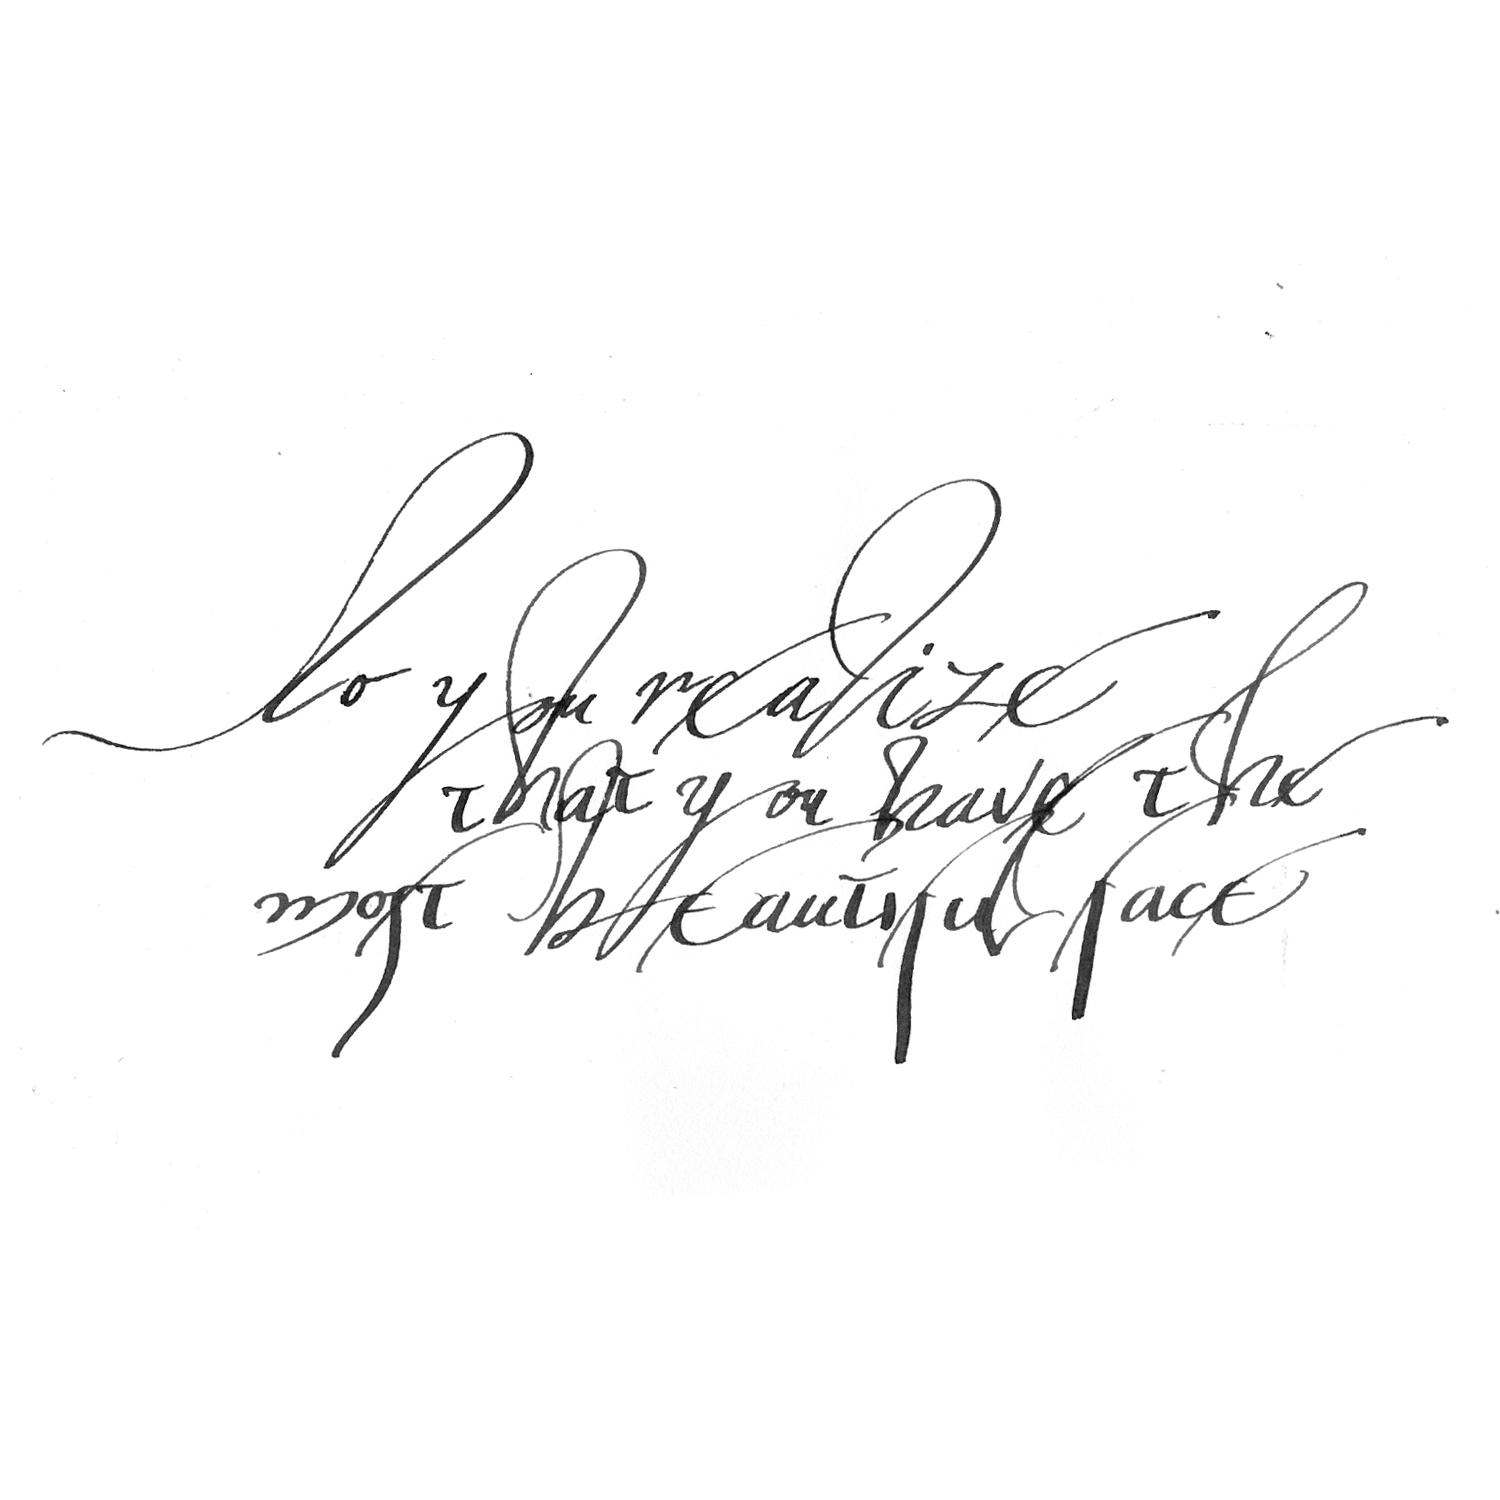 Do you realize
that you have the
most beautiful face